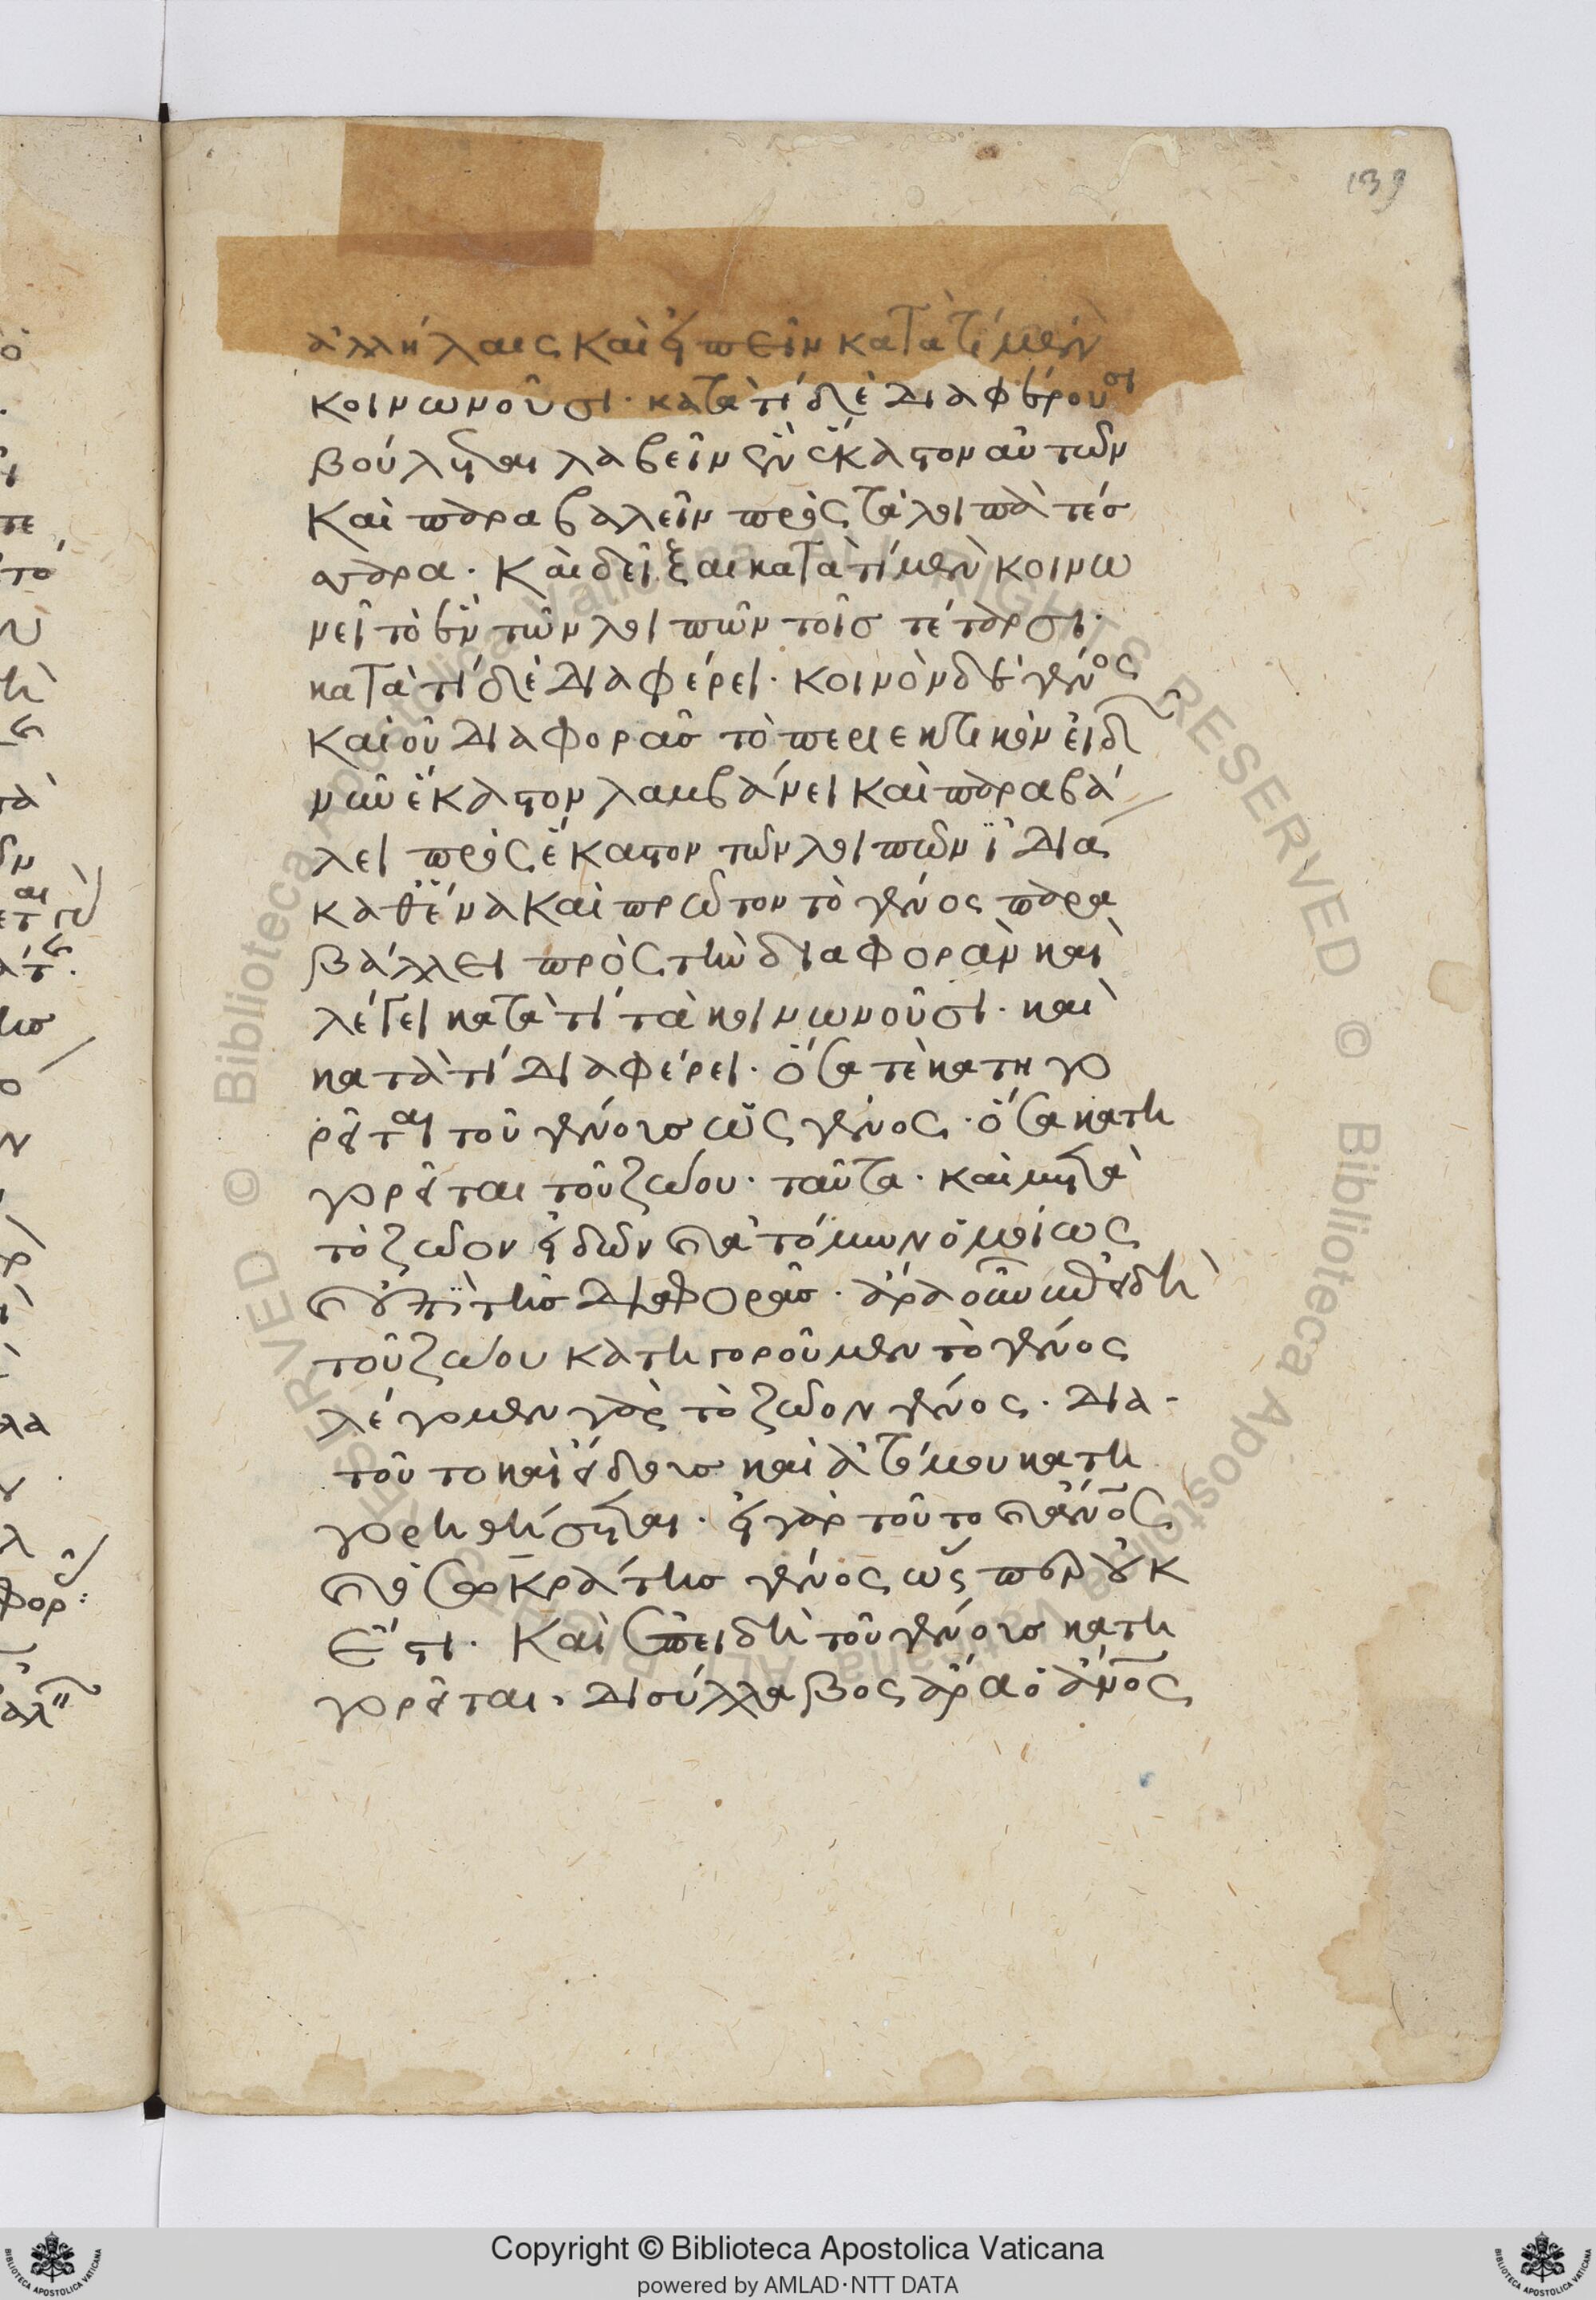 139
ἀλλήλαις καὶ εἰπεῖν κατὰ τί μὲν
κοινωνοῦσι· κατὰ τί δὲ διαφέρουσι
βούλεται λαβεῖν ἓν ἕκαστον αὐτῶν
καὶ παραβαλεῖν πρὸς τὰ λοιπὰ τέσ
σαρα· καὶ δεῖξαι κατὰ τί μὲν κοινω
νεῖ τὸ ἓν τῶν λοιπῶν τοῖς τέταρσι·
κατὰ τί δὲ διαφέρει· κοινὸν δὲ γένος
καὶ οὐ διαφορᾶς τὸ περιεκτικὸν εἰδ
νῶν ἕκαστον λαμβάνει καὶ παραβά
λει πρὸς ἕκαστον τῶν λοιπῶν ἰδία
καθένα καὶ πρῶτον τὸ γένος παρα
βάλλει πρὸς τὴν διαφορὰν καὶ
λέγει κατὰ τί τὰ κοινωνοῦσι· καὶ
κατὰ τί διαφέρει· ὅσα τε κατηγο
ρεῖται τοῦ γένους ὡς γένος· ὅσα κατη
γορεῖται τοῦ ζώου· ταῦτα· καὶ μετὰ
τὸ ζῶον εἰδῶν ἀτόμων ὁμοίως
τῆς διαφορᾶς· ἄρα οὖν
τοῦ ζώου κατηγοροῦμεν τὸ γένος
λέγομεν γὰρ τὸ ζῶον γένος· δια-
τοῦτο καὶ εἴδους καὶ ἀτόμου κατη
γορηθήσεται· εἰ γὰρ τοῦτο
σωκράτης γένος ὥς οὐκ
ἔστι· καὶ ἐπειδὴ τοῦ γένους κατη
γορεῖται· δισύλλαβος ἄρα ὁ ἄνος
Copyright © Biblioteca Apostolica Vaticana
powered by AMLAD·NTT DATA